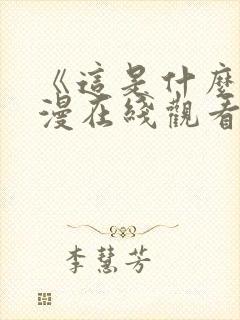 《這是什麼
漫在綫觀看
李慧芳